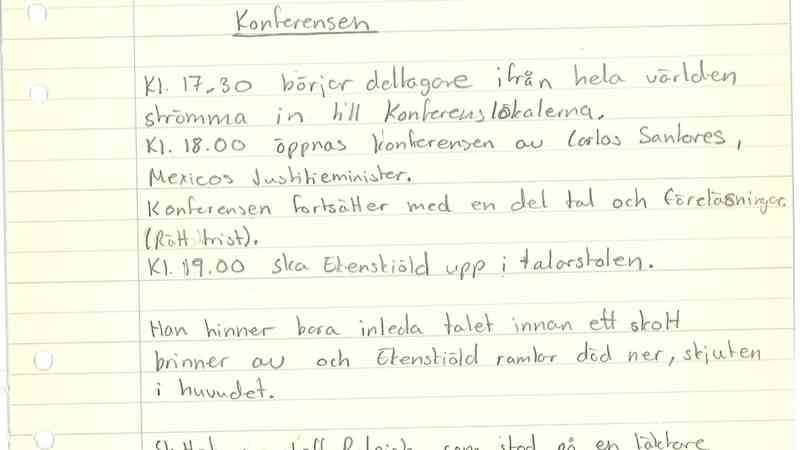 Konferensen
Kl. 17.30 börjar deltagare ifrån hela världen
strömma in till Konferenslokalerna.
Kl. 18.00 öppnas konferensen av Carlos Santares,
Mexicos Justitieminister.
Konferensen fortsätter med en del tal och föreläsningar.
(Rätt trist).
Kl. 19.00 ska Ekenskiöld upp i talarstolen.
Han hinner bara inleda talet innan ett skott
brinner av och Ekenskiöld ramlar död ner, skjuten
i huvudet.
som stod på en läktare